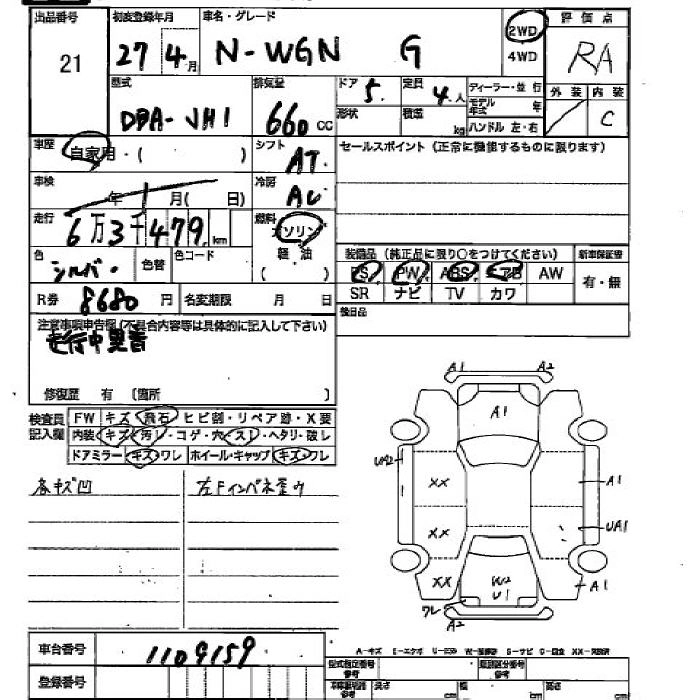 出品番号 初度登録年月 車名・グレード 評価点
21 27 4月 N-WGN G 2WD 4WD RA
型式 排気量 ドア 定員 ディーラー・並行 外装 内装
DBA-JH1 660cc 5. 4.人 モデル年式 年
形状 積載 kg ハンドル 左・右 C
車歴 自家用・( ) シフト AT. セールスポイント(正常に機能するものに限ります)
車検 年 1月( 日) 冷房 AC
走行 6万3千479km 燃料 ソリン
軽・油
( )
色 シルバー 色替 色コード
装備品(純正品に限り○をつけてください) 新車保証書
PS PW ABS エアB AW 有・無
SR ナビ TV カワ
R券 8680円 名変期限 月 日
後日品
注意事項申告欄(不具合内容等は具体的に記入して下さい)
走行中異音
修復歴 有 〔箇所 〕
検査員記入欄 FW キズ・飛石・ヒビ割・リペア跡・X要
内装・キズ・汚レ・コゲ・穴・スレ・ヘタリ・破レ
ドアミラー キズ・ワレ ホイール・キャップ キズ・ワレ
各キズ凹 左Fインパネ歪み
A1 A2
A1
UA2
XX A1
XX UA1
XX W2 A1
U1
ワレ
A2
車台番号 1109159
登録番号
A-キズ E-エクボ U-凹 W-補修跡 S-サビ C-腐食 XX-交換済
型式指定番号 参考 類別区分番号 参考
長さ cm 幅 cm 高さ cm